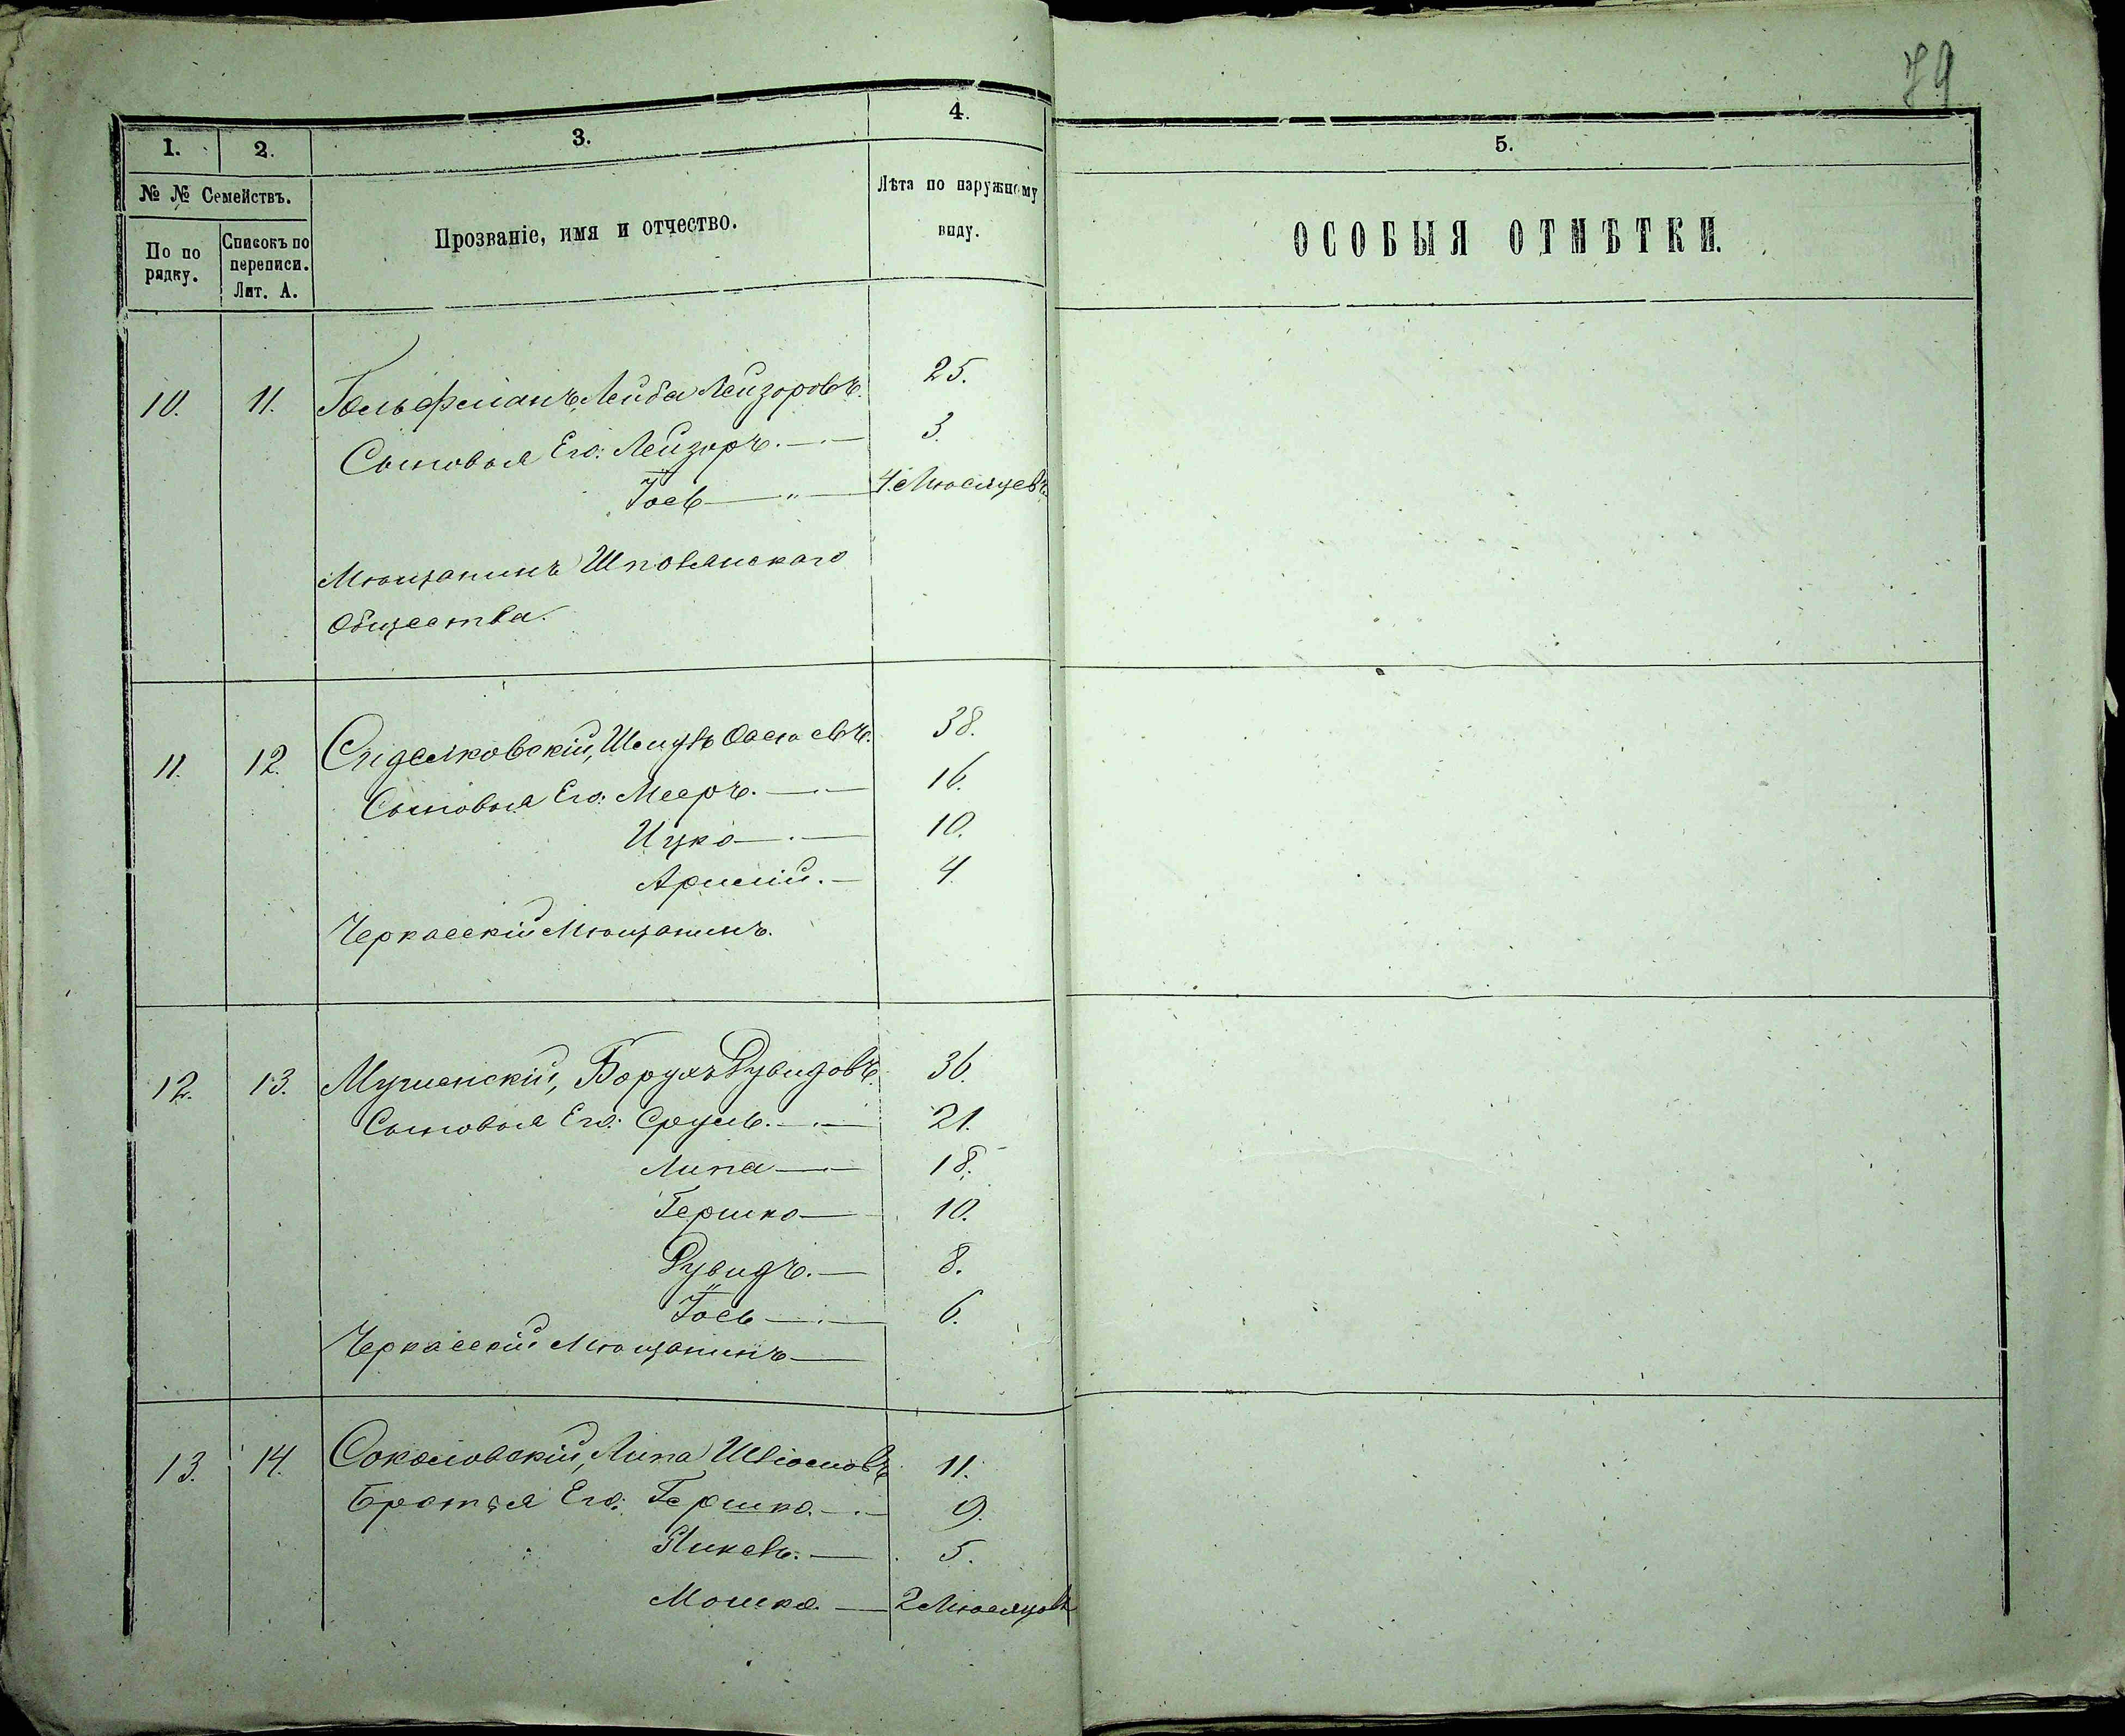 79
1.
2.
3.
4.
5.
№ № Семействъ.
По по рядку.
Списокъ по переписи. Лит. А.
Прозваніе, имя и отчество.
Лѣта по наружному виду.
ОСОБЫЯ ОТМѢТКИ.
10. 11. Гельфманъ, Лейба Лейзоровъ. 25.
Сыновья Его: Лейзоръ. — 3.
Іось — " — 4. Мѣсяцевъ.
Мѣщанинъ Шполянскаго
Общества.
11. 12. Шмуль 38.
Сыновья Его: Мееръ. — 16.
Ицко — 10.
4.
Черкасскій Мѣщанинъ.
12. 13. Борухъ Рувидовъ. 36.
Сыновья Его: Сруль. — 21.
Липа — 18.
Гершко — 10.
Рувидъ. — 8.
Іось — 6.
Черкасскій Мѣщанинъ —
13. 14. Соколовскій, Липа 11.
Братья Его: Гершко. — 9.
5.
Мошко. — 2 Мѣсяцовъ